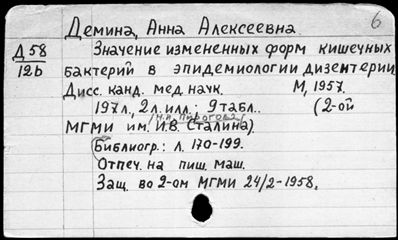 6
Демина, Анна Алексеевна
Д58
12b
Значение измененных форм кишечных
бактерий в эпидемиологии дизентерии
Дисс. канд. мед. наук. М, 1957.
197л., 2л. илл.; 9 табл.. (2-ой
(н.и. Пирогова)
МГМИ им. И.В. Сталина)
Библиогр.: л. 170-199.
Отпеч. на пиш. маш.
Защ. во 2-ом МГМИ 24/2-1958.